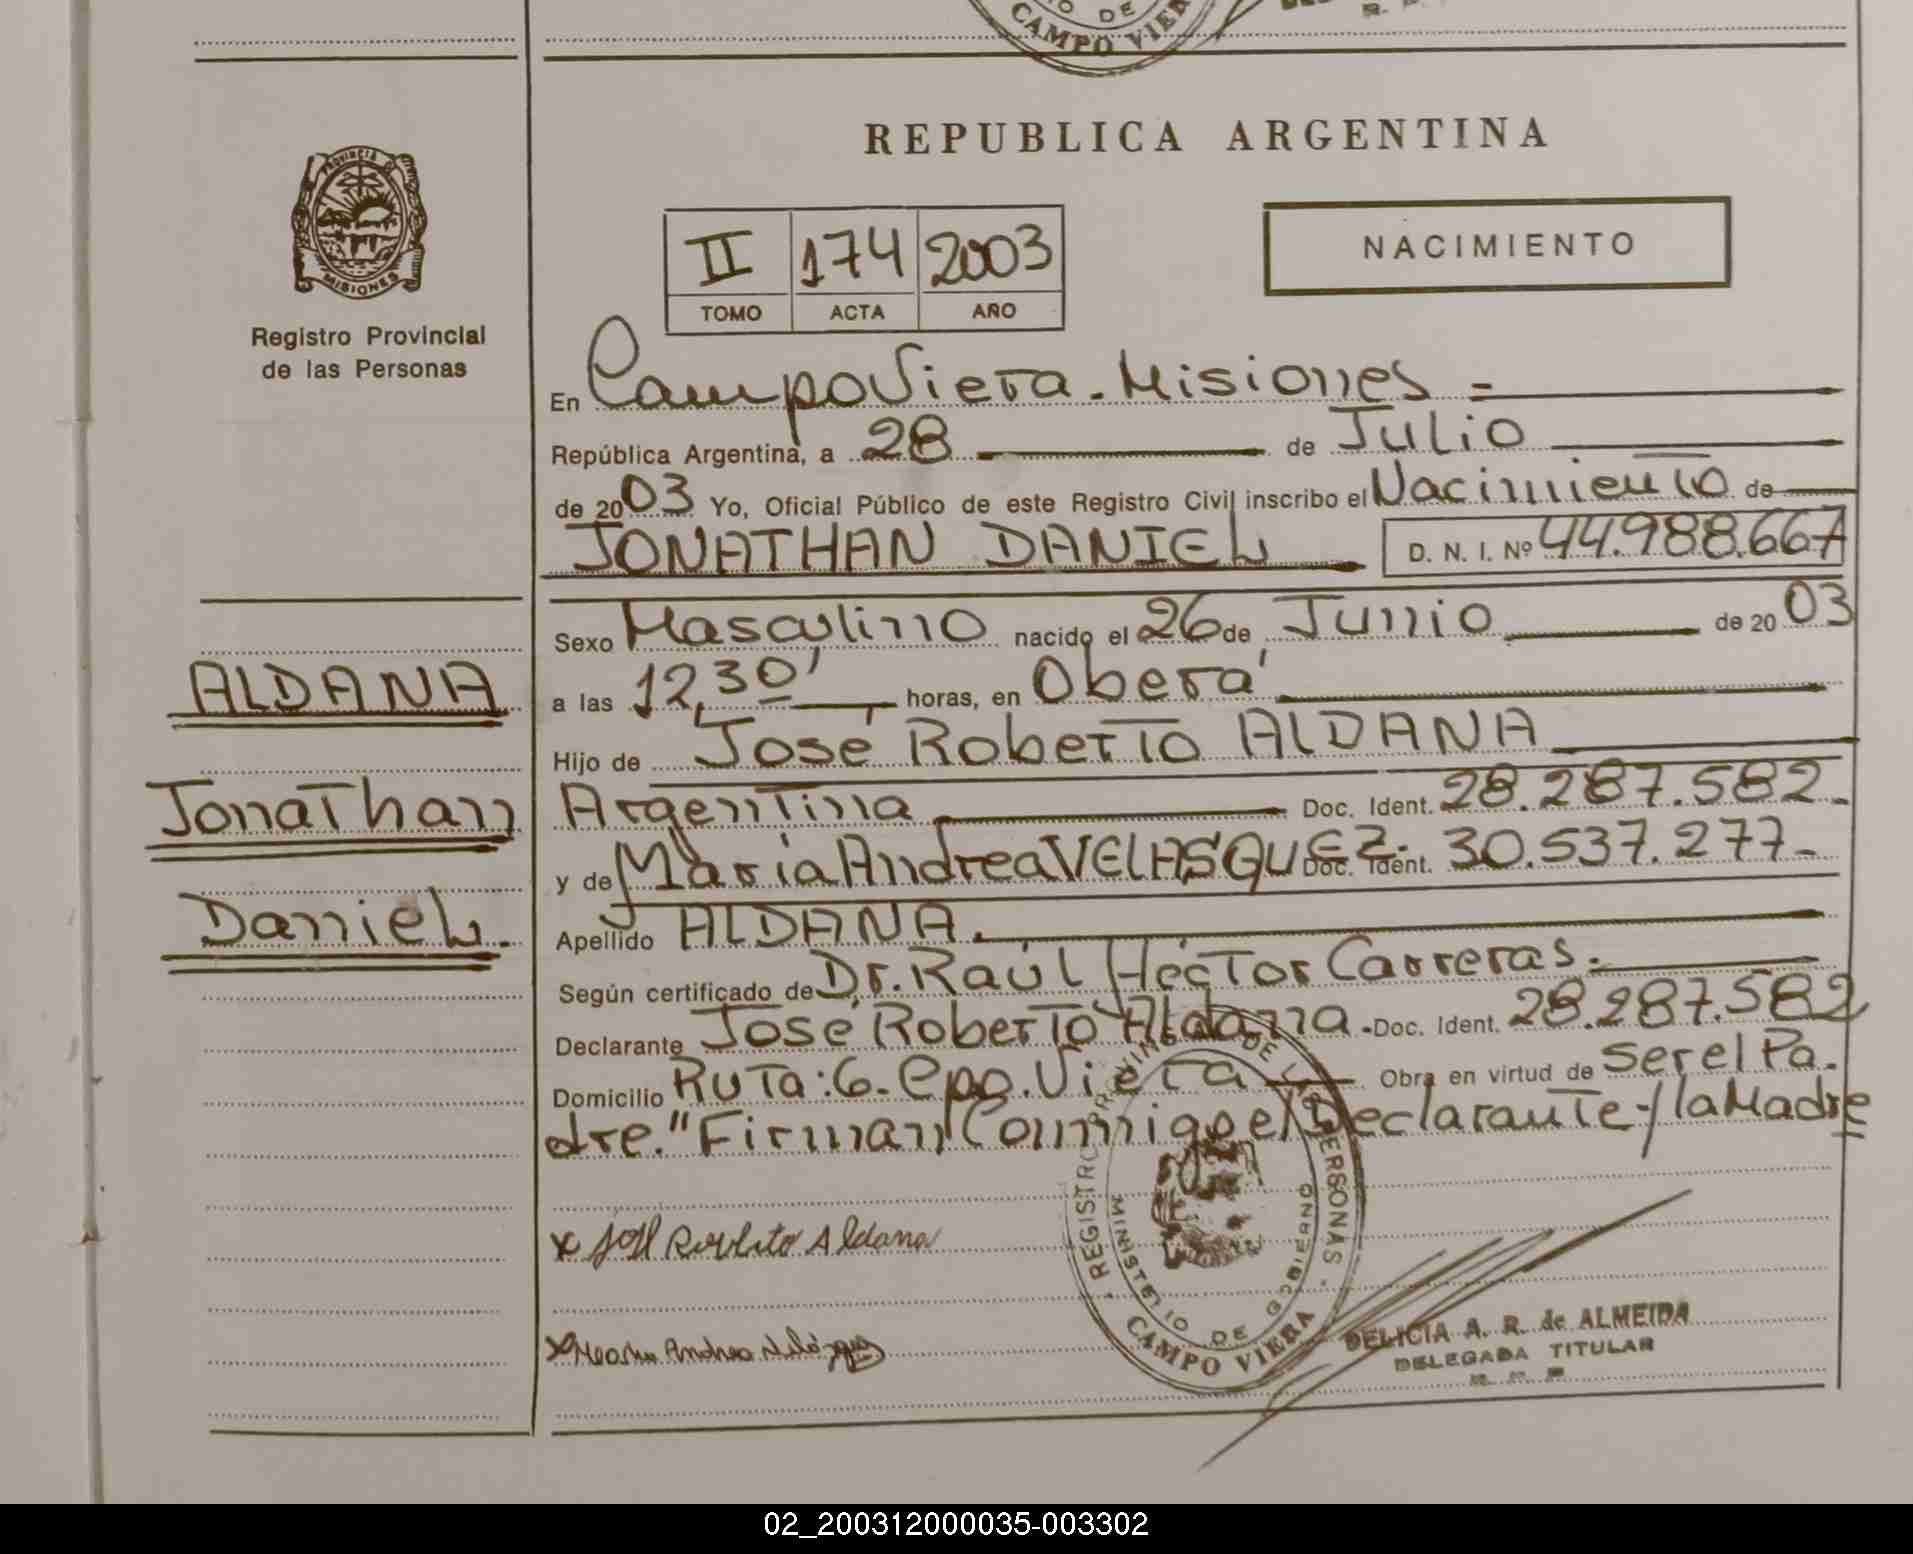 CAMPO VIERA
REPUBLICA ARGENTINA
PROVINCIA DE
MISIONES
Registro Provincial
de las Personas
II 174 2003
TOMO ACTA AÑO
NACIMIENTO
En Campo Viera - Misiones =
República Argentina, a 28 de Julio
de 2003 Yo, Oficial Público de este Registro Civil inscribo el Nacimiento de
JONATHAN DANIEL D. N. I. Nº 44.988.667
Sexo Masculino nacido el 26 de Junio de 2003
ALDANA
a las 12,30' horas, en Oberá
Hijo de José Roberto ALDANA
Jonathan
Argentina Doc. Ident. 28.287.582-
y de María Andrea VELASQUEZ. Doc. Ident. 30.537.277-
Daniel.
Apellido ALDANA.
Según certificado de Dr. Raúl Héctor Carreras.
Declarante José Roberto Aldana. Doc. Ident. 28.287.582
Domicilio Ruta: 6. Cpo. Viera Obra en virtud de ser el Pa.
dre." Firman Conmigo el Declarante y la Madre
x José Roberto Aldana
x María Andrea Velázquez
REGISTRO PROVINCIAL DE LAS PERSONAS
MINISTERIO DE GOBIERNO
CAMPO VIERA
DELICIA A. R. de ALMEIDA
DELEGADA TITULAR
02_200312000035-003302